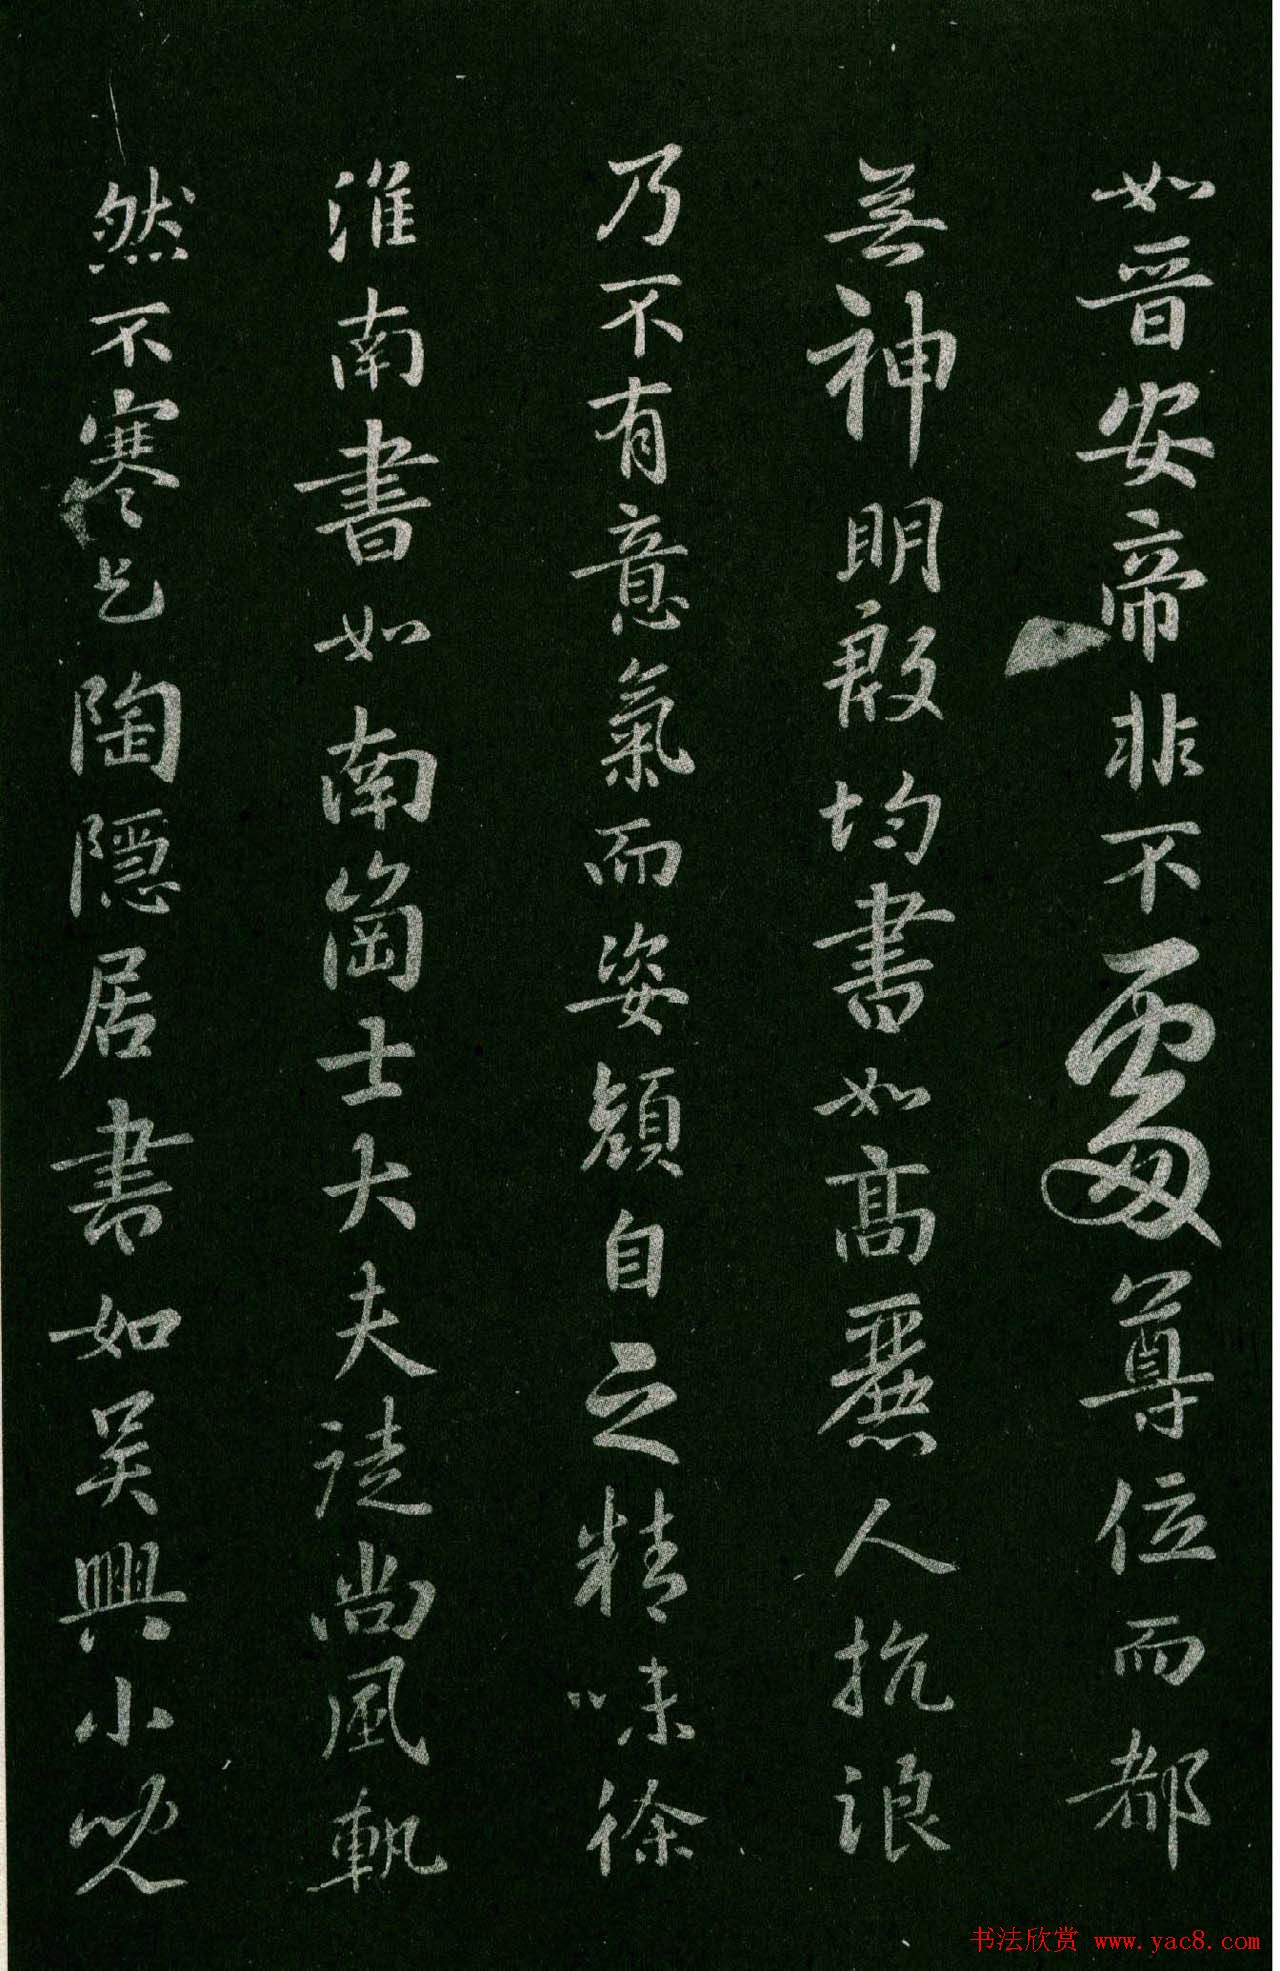 如晉安帝非不處尊位而都
無神明殷均書如高麗人抗浪
乃不有意氣而姿顏自之精味徐
淮南書如南崗士大夫徒尚風軌
然不寒乞陶隱居書如吳興小兒
书法欣赏 www.yac8.com